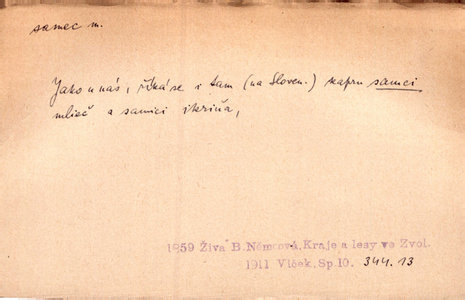 samec m.
Jako u nás, říká se i tam (na Sloven.) kapru samci
mlieč a samici ikrňa,
1859 Živa B. Němcová, Kraje a lesy ve Zvol.
1911 Vlček, Sp. 10. 344.13